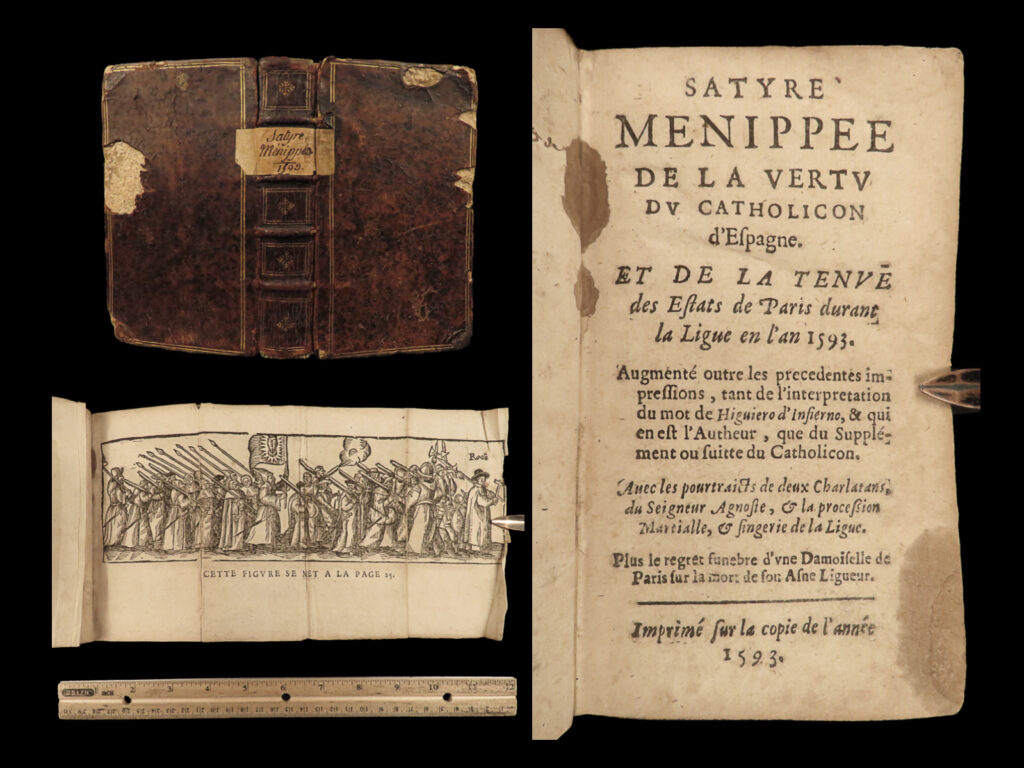 Satyre
Menippée
SATYRE
MENIPPEE
DE LA VERTV
DV CATHOLICON
d'Eſpagne.
ET DE LA TENVË
des Eſtats de Paris durant
la Ligue en l'an 1593.
Augmenté outre les precedentes im-
preſſions, tant de l'interpretation
du mot de Higuiero d'Inſierno, & qui
en eſt l'Autheur, que du Supplé-
ment ou ſuitte du Catholicon.
Auec les pourtraicts de deux Charlatans,
du Seigneur Agnoſte, & la proceſſion
Martialle, & ſingerie de la Ligue.
Plus le regret funebre d'vne Damoiſelle de
Paris ſur la mort de ſon Aſne Ligueur.
Imprimé ſur la copie de l'année
1593.
CETTE FIGVRE SE MET A LA PAGE 25.
INCH 2 3 4 5 6 7 8 9 10 11 12